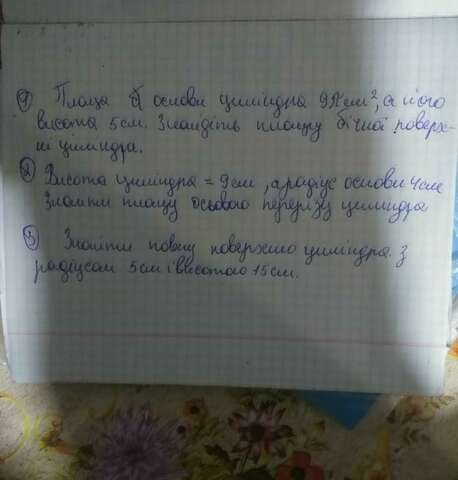 1 Площа б основи циліндра 9π см², а його
висота 5 см. Знайдіть площу бічної поверх-
ні циліндра.
2 Висота циліндра = 9 см, а радіус основи 4 см
Знайти площу осьового перерізу циліндра
3 Знайти повну поверхню циліндра. З
радіусом 5 см і висотою 15 см.